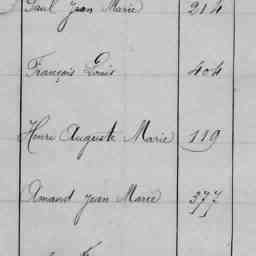 Paul Jean Marie 214
François Louis 404
Henri Auguste Marie 119
Amand Jean Marie 377